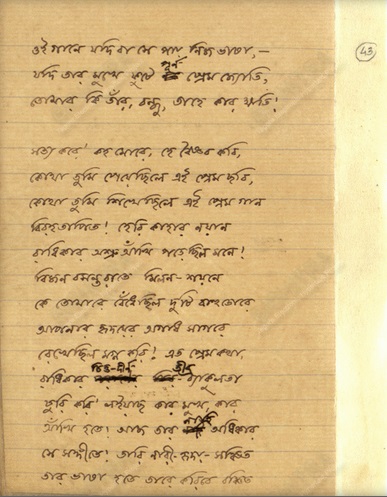 ওই গানে যদি বা সে পায় নিজ ভাষা,—
যদি তার মুখে ফুটে পূর্ণ প্রেমজ্যোতি,
তোমার কি তাঁর, বন্ধু, তাহে কার ক্ষতি!
সত্য করে' কহ মোরে, হে বৈষ্ণব কবি,
কোথা তুমি পেয়েছিলে এই প্রেমছবি,
কোথা তুমি শিখেছিলে এই প্রেমগান
বিরহতাপিত! হেরি কাহার নয়ান
রাধিকার অশ্রুআঁখি পড়েছিল মনে!
বিজন বসন্তরাতে মিলন-শয়নে
কে তোমারে বেঁধেছিল দুটি বাহুডোরে
আপনার হৃদয়ের অগাধ সাগরে
রেখেছিল মগ্ন করি! এত প্রেমকথা,
রাধিকার চিত্ত-দীর্ণ তীব্র ব্যাকুলতা
চুরি করি' লইয়াছ কার মুখ, কার
আঁখি হতে! আজ তার নাহি অধিকার
সে সঙ্গীতে! তারি নারী-হৃদয়-সঞ্চিত
তার ভাষা হতে তারে করিবে বঞ্চিত
43